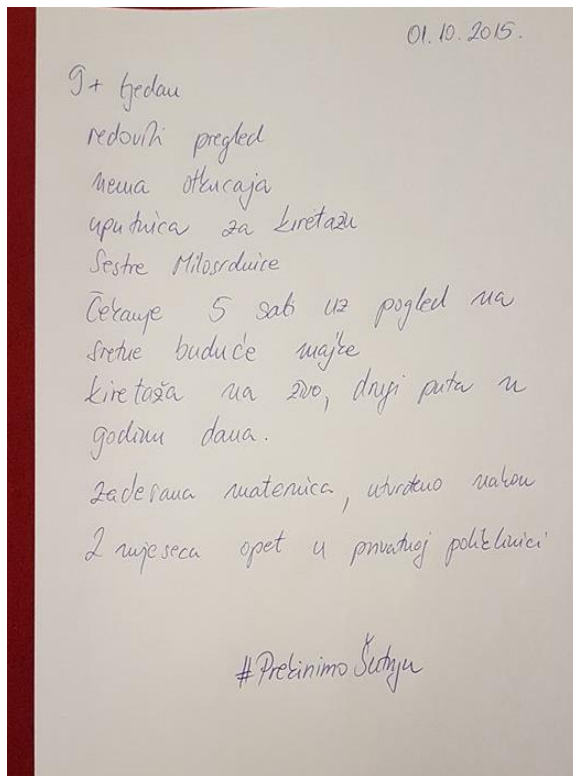 01.10.2015.
9+ tjedan
redoviti pregled
nema otkucaja
uputnica za kiretažu
Sestre Milosrdnice
Čekanje 5 sati uz pogled na
sretne buduće majke
kiretaža na živo, drugi puta u
godinu dana.
zaderana maternica, utvrđeno nakon
2 mjeseca opet u privatnoj poliklinici
#Prekinimo Šutnju